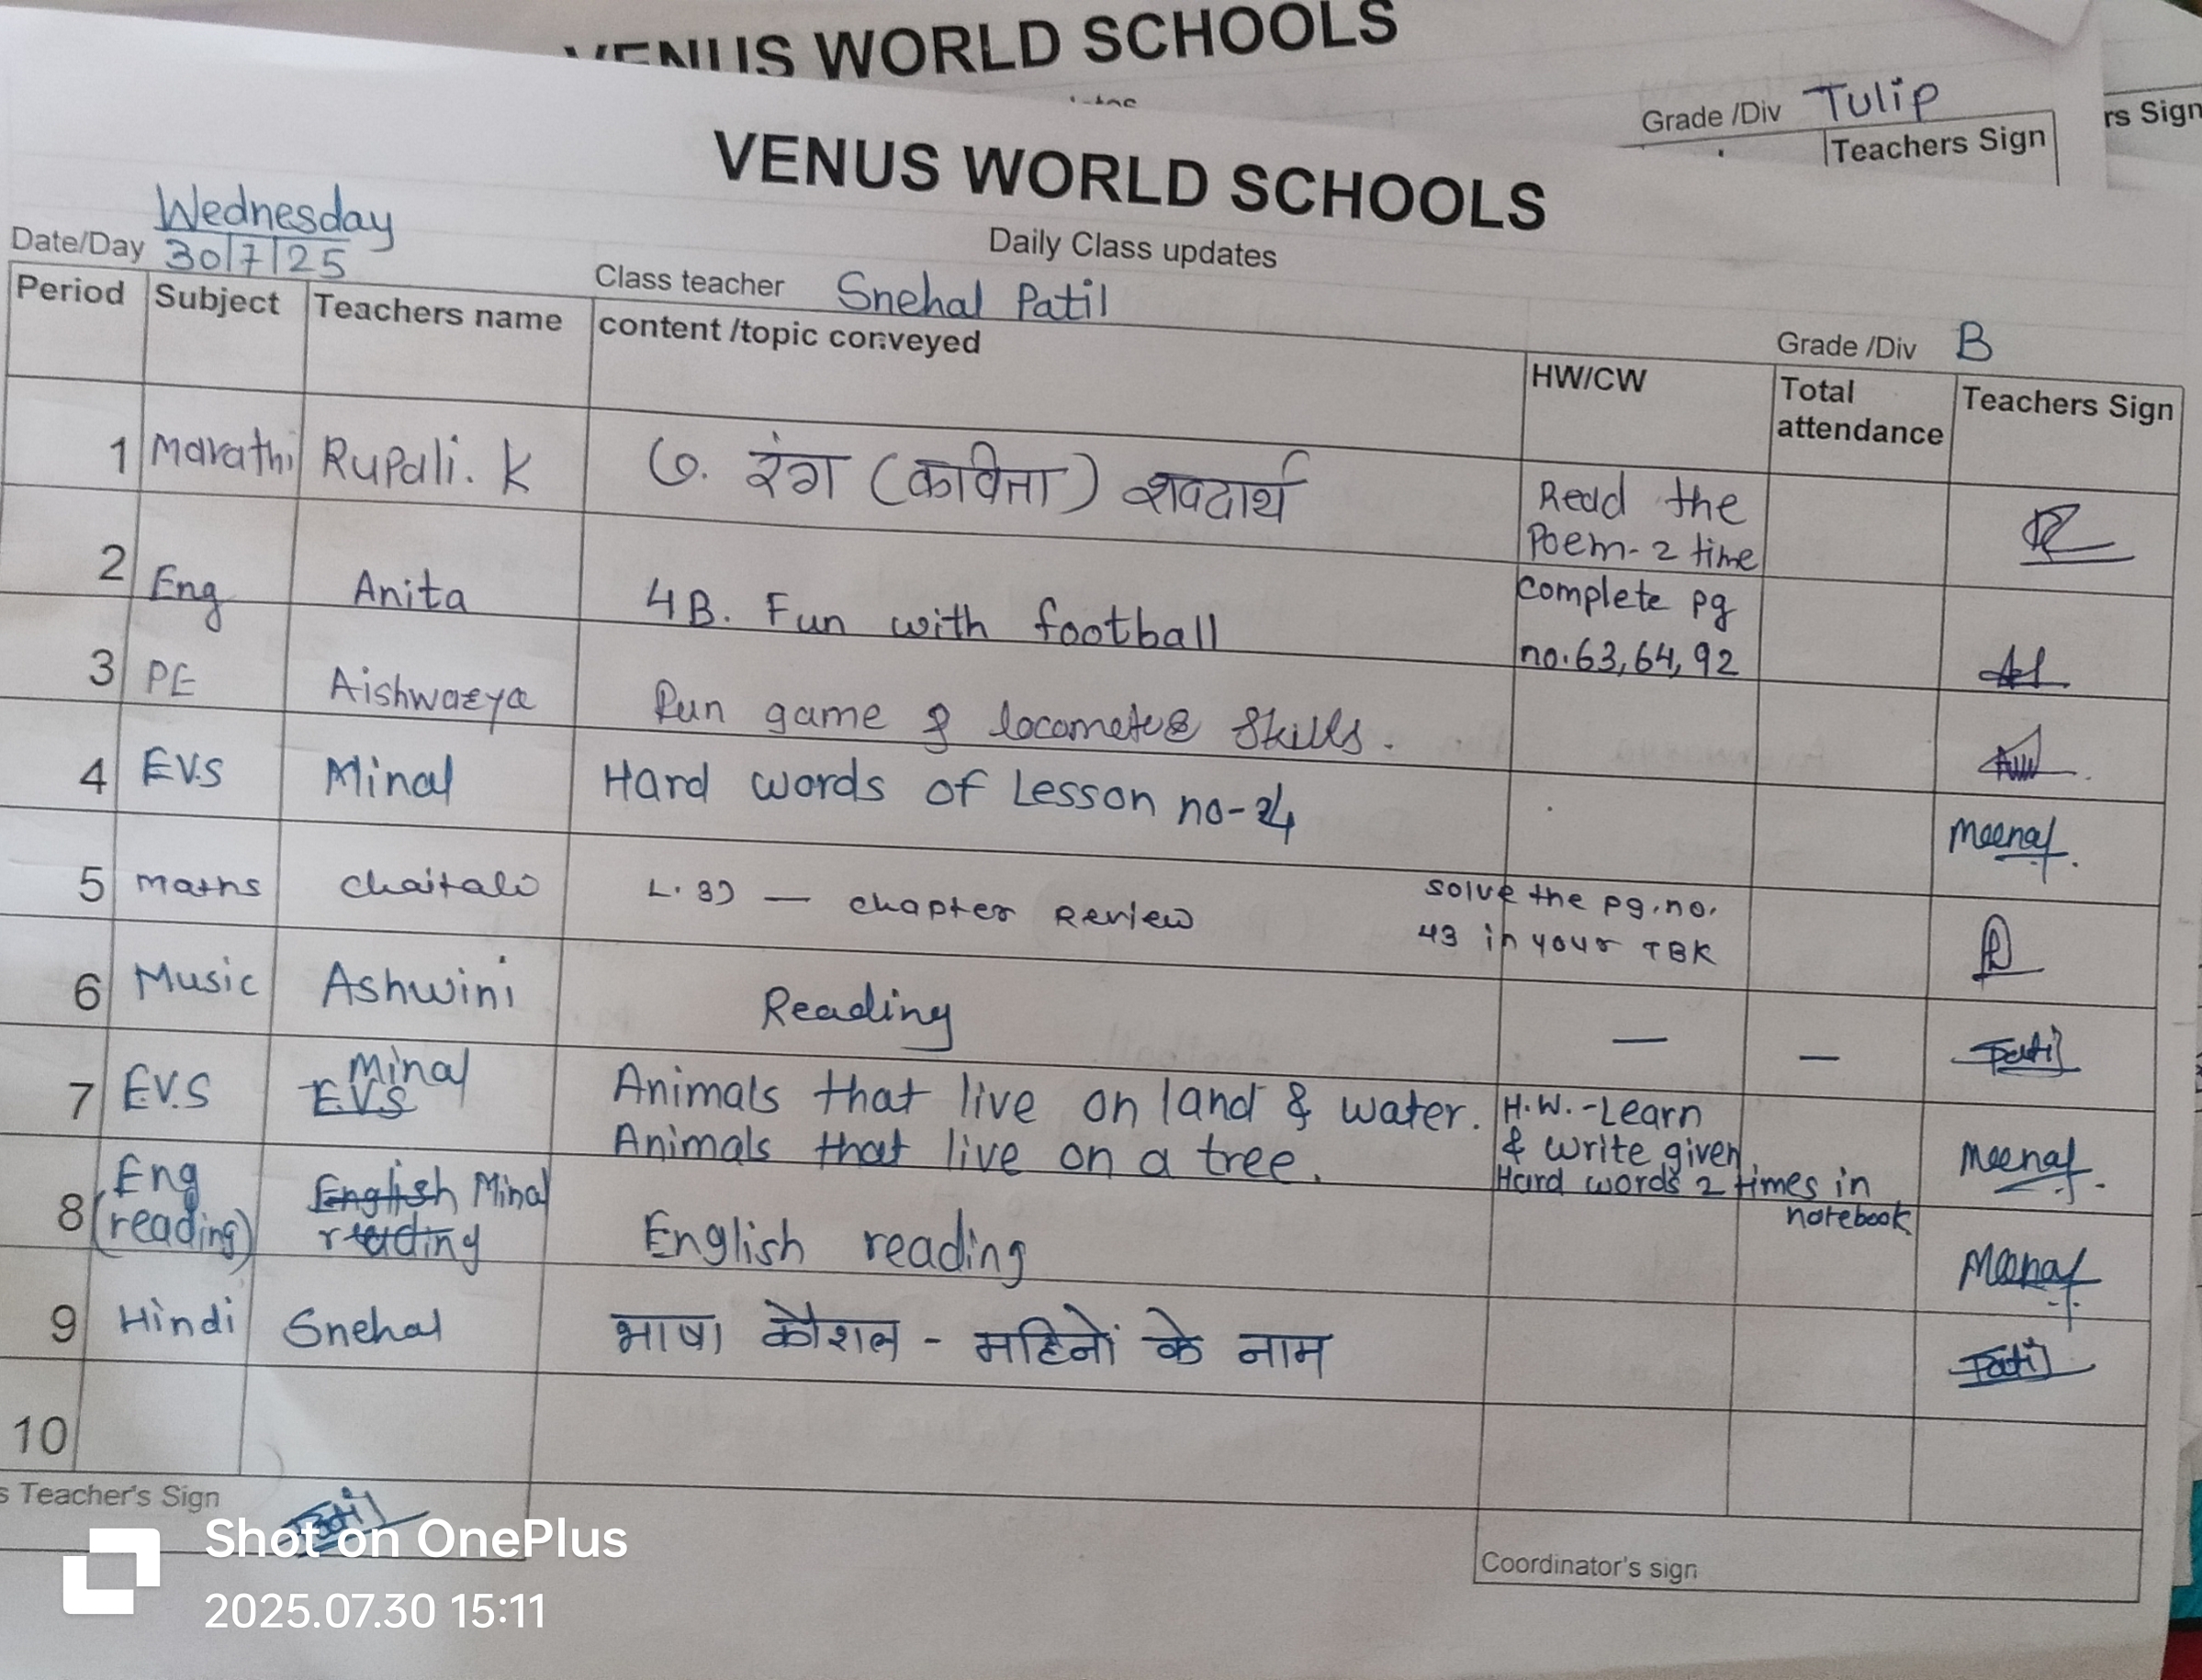 VENUS WORLD SCHOOLS
Grade /Div Tulip
Teachers Sign
rs Sign
VENUS WORLD SCHOOLS
Daily Class updates
Wednesday
Date/Day 30/7/25
Class teacher Snehal Patil
Grade /Div B
Period Subject Teachers name content /topic conveyed HW/CW Total attendance Teachers Sign
1 Marathi Rupali. K ७. रंग (कविता) शवदार्थ Read the
Poem-2 time
2 Eng Anita 4B. Fun with football complete pg
no.63,64,92
3 PE Aishwarya Run game & Skills.
4 EVS Minal Hard words of Lesson no-4 Meenal
5 maths chaitali L. 3) — chapter Review solve the pg.no.
43 in your TBK
6 Music Ashwini Reading — — Patil
7 E.V.S Minal
EVS
Animals that live on land & water.
Animals that live on a tree.
H.W.-Learn
& write given
Hard words 2 times in
notebook
Meenal
8 Eng
(reading)
English Minal
reading
English reading Meenal
9 Hindi Snehal भाषा कौशल - महिनों के नाम Patil
10
s Teacher's Sign Patil
Coordinator's sign
Shot on OnePlus
2025.07.30 15:11